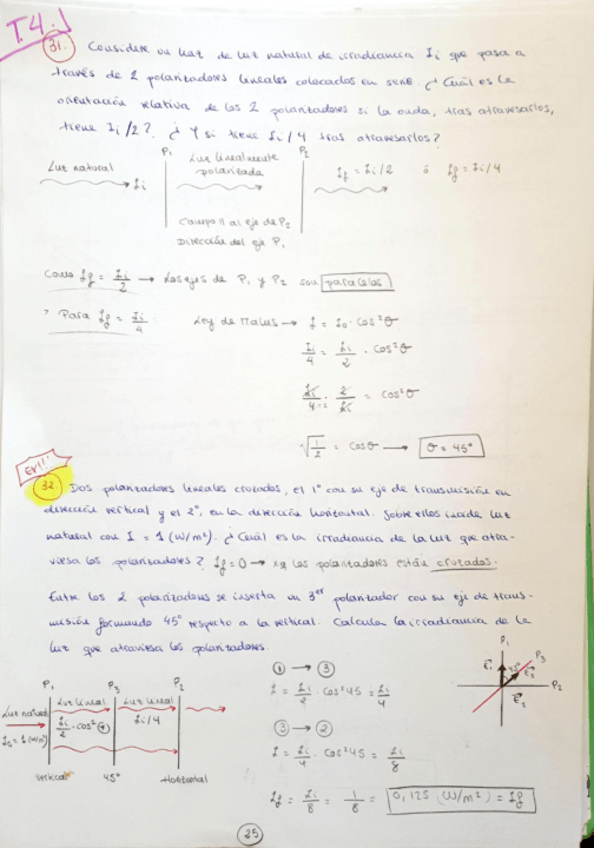 T.4.
31. Considere un haz de luz natural de irradiancia Ii que pasa a
través de 2 polarizadores lineales colocados en serie. ¿Cuál es la
orientación relativa de los 2 polarizadores si la onda, tras atravesarlos,
tiene Ii/2? ¿Y si tiene Ii/4 tras atravesarlos?
P1 P2
Luz natural Luz linealmente If = Ii/2 ó If = Ii/4
Ii polarizada
Campo || al eje de P2
Dirección del eje P1
Como If = Ii/2 → Los ejes de P1 y P2 son paralelos
Para If = Ii/4 Ley de Malus → I = I0 · cos²θ
Ii/4 = Ii/2 · cos²θ
Ii/4 · 2/Ii = cos²θ
√1/2 = cosθ → θ = 45°
EX!!
32. Dos polarizadores lineales cruzados, el 1º con su eje de transmisión en
dirección vertical y el 2º, en la dirección horizontal. Sobre ellos incide luz
natural con I = 1 (W/m²). ¿Cuál es la irradiancia de la luz que atra-
viesa los polarizadores? If = 0 → xq los polarizadores están cruzados.
Entre los 2 polarizadores se inserta un 3er polarizador con su eje de trans-
misión formando 45° respecto a la vertical. Calcula la irradiancia de la
luz que atraviesa los polarizadores.
P1 P3 P2
Luz natural Luz lineal Luz lineal
Ii/2 · cos² Ii/4
I0 = 1 (W/m²)
vertical 45° Horizontal
1 → 3
I = Ii/2 · cos²45 = Ii/4
3 → 2
I = Ii/4 · cos²45 = Ii/8
If = Ii/8 = 1/8 = 0,125 (W/m²) = If
P1
E1 45° P3
E3
P2
E2
25